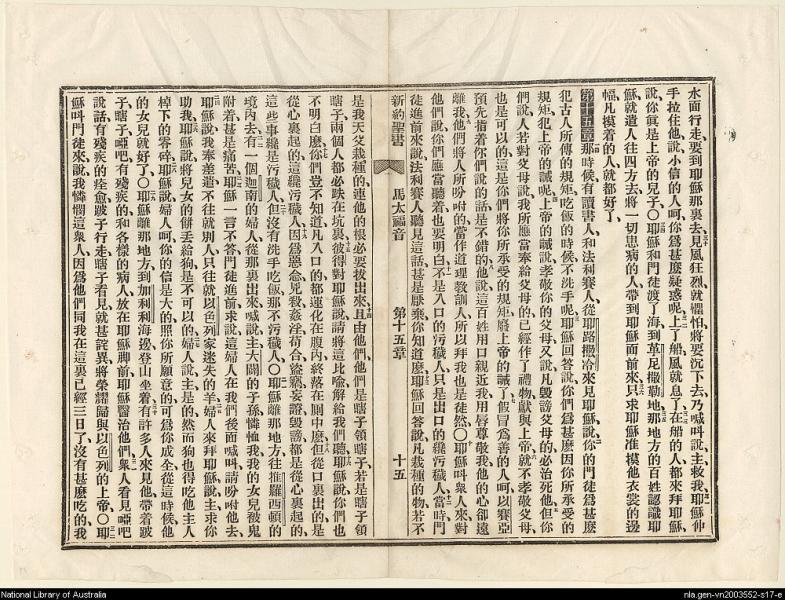 水面行走、要到耶穌那裏去、見風狂烈、就懼怕、將要沉下去、乃喊叫說、主救我、耶穌伸
手拉住他說、小信的人呵、你爲甚麽疑惑呢、上了船、風就息了、在船的人、都來拜耶穌、
說、你眞是上帝的兒子、〇耶穌和門徒渡了海、到革尼撒勒地、那地方的百姓認識耶
穌、就遣人往四方去、將一切患病的人、帶到耶穌面前來、只求耶穌准摸他衣裳的邊
幅、凡摸着的人、就都好了、
第十五章 那時候有讀書人和法利賽人、從耶路撒冷來見耶穌、說、你的門徒爲甚麽
犯古人所傳的規矩、吃飯的時候不洗手呢、耶穌回答說、你們爲甚麽因你所承受的
規矩、犯上帝的誡呢、上帝的誡說、孝敬你的父母、又說、凡毀謗父母的必治死他、但你
們說、人若對父母說、我所應當奉給父母的、已經作了禮物獻與上帝、就不孝敬父母、
也是可以的、這是你們將你所承受的規矩、廢上帝的誡了、假冒爲善的人呵、以賽亞
預先指着你們說的話是不錯的、他說、這百姓用口親近我、用唇尊敬我、他的心卻遠
離我、他們將人所吩咐的當作道理敎訓人、所以拜我也是徒然、〇耶穌叫衆人來、對
他們說、你們應當聽着、也要明白、不是入口的污穢人、只是出口的纔污穢人、當時門
徒進前來說、法利賽人聽見這話、甚是厭棄、你知道麽、耶穌回答說、凡栽種的物、若不
新約聖書 馬太福音 第十五章 十五
是我天父栽種的、連他的根必要拔出來、且由他們、他們是瞎子領瞎子、若是瞎子領
瞎子、兩個人都必跌在坑裏、彼得對耶穌說、請將這比喻解給我們聽、耶穌說、你們也
不明白麽、你們豈不知道凡入口的、都運化在腹內、終落在厠中麽、但從口裏出的、是
從心裏起的、這纔污穢人、因爲惡念、兇殺、姦淫、苟合、盜竊、妄證、毀謗、都是從心裏起的、
這些事纔是污穢人、但沒有洗手吃飯、那不污穢人、〇耶穌離那地方、往推羅西頓的
境內去、有一個迦南的婦人、從那裏出來、喊說、主大闢的子孫、憐恤我、我的女兒被鬼
附着、甚是痛苦、耶穌一言不答、門徒進前求說、這婦人在我們後面喊叫、請吩咐他去、
耶穌說、我奉差遣、不往就別人、只往就以色列家迷失的羊、婦人來拜耶穌說、主求你
助我、耶穌說、將兒女的餅丟給狗、是不可以的、婦人說、主是的、然而狗也得吃他主人
棹下的零碎、耶穌說、婦人呵、你的信是大的、照你所願意的可爲你成全、從這時候他
的女兒就好了、〇耶穌離那地方、到加利利海邊、登山坐着、有許多人來見他、帶着跛
子、瞎子、啞吧、有殘疾的、和各樣的病人、放在耶穌脚前、耶穌醫治他們、衆人看見啞吧
說話、有殘疾的痊愈、跛子行走、瞎子看見、就甚詫異、將榮耀歸與以色列的上帝、〇耶
穌叫門徒來說、我憐憫這衆人、因爲他們同我在這裏已經三日了、沒有甚麽吃的、我
National Library of Australia
nla.gen-vn2003552-s17-e